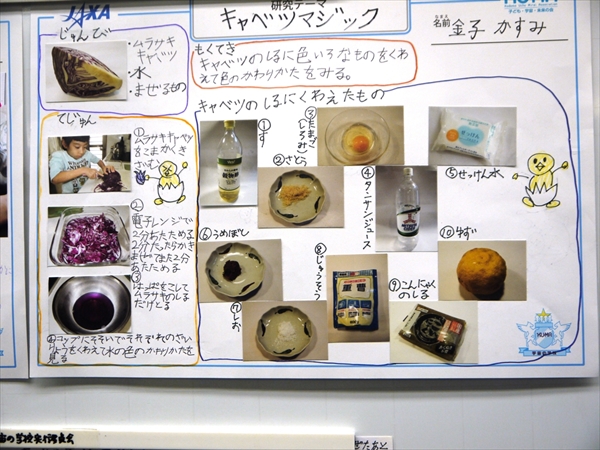 JAXA
研究テーマ
キャベツマジック
KU-MA
子ども・宇宙・未来の会
なまえ
名前 金子 かすみ
じゅんび
・ムラサキ
キャベツ
・水
・まぜるもの
もくてき
キャベツのしるに色いろなものをくわ
えて色のかわりかたをみる。
てじゅん
①
ムラサキキャベツ
をこまかくき
ざいむ
②
電子レンジで
2分あたためる
2分たったらかき
まぜてまた2分
あたためる
③
はっぱをこして
ムラサキのしる
だけとる
④コップにそそいでそれぞれのざい
りょうをくわえて水の色のかわりかたを
見る
キャベツのしるにくわえたもの
①す
②さとう
③たまご
(しろみ)
④タンサンジュース
⑤せっけん水
せっけん
⑥うめぼし
⑦しお
⑧じゅうそう
⑨こんにゃく
のしる
⑩ゆず
KU-MA
宇宙の学校